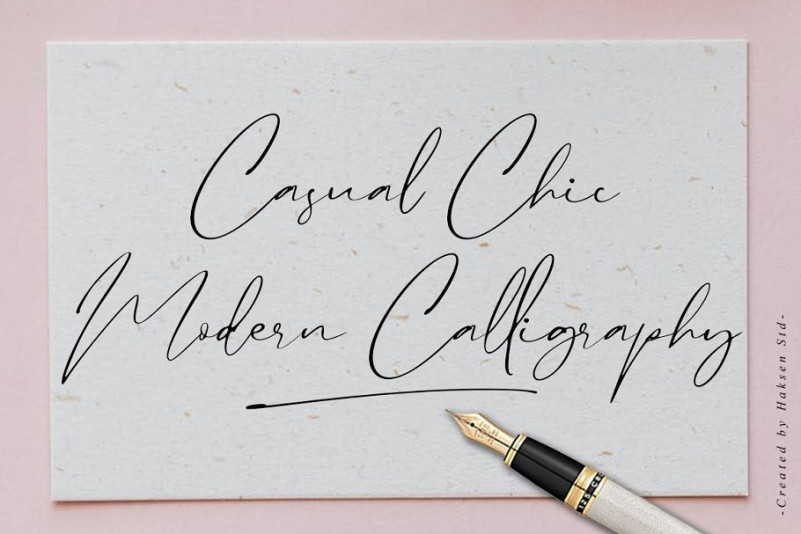 Casual Chic
Modern Calligraphy
-Created by Haksen Std-